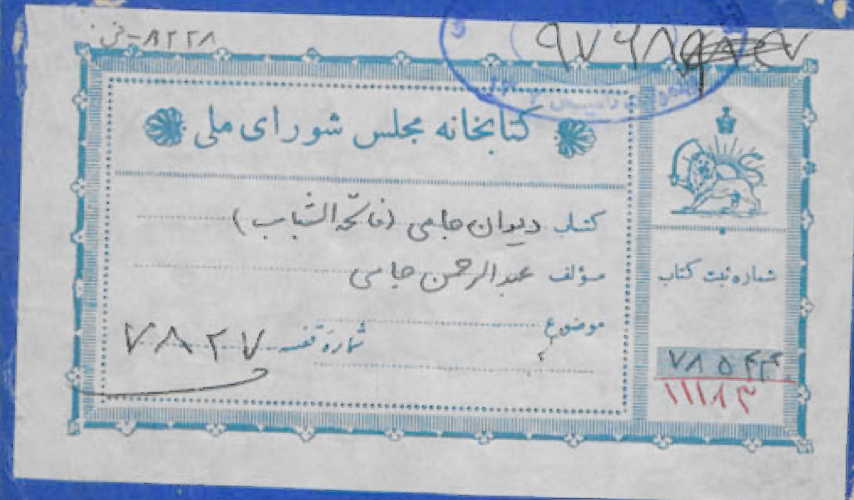 ۸۲۲۸ - فن
۹۷۶۸
کتابخانه مجلس شورای ملی
کتاب دیوان جامی (فاتحة الشباب)
مؤلف عبدالرحمن جامی
موضوع
شماره قفسه ۷۸۲۷
شماره ثبت کتاب
۷۸۵۴۴
۱۱۱۸۳